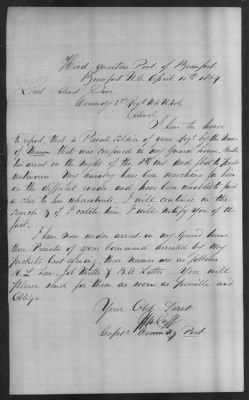 Head quarters Post of Beaufort
Beaufort N.C. April 10th 1864
Lieut
Commdg 2nd Regt N.C. U.V.
Colonel
I have the honor
to report, that a Private Soldier of your Regt by the name
of that was confined to my Guard house, broke
his arrest on the night of the 8th inst and fled to parts
unknown. My Cavalry have been searching for him
on the different roads and have been unable to find
a clue to his whereabouts. I will continue on the
search & if I catch him I will notify you of the
fact.
I have now under arrest in my Guard house
three Privates of your Command arrested by my
pickets last evening, their names are as follows
Jos. Wells & B.A. You will
please send for them as soon as possible and
Oblige
Your Obt Servt
Capt Commdg Post